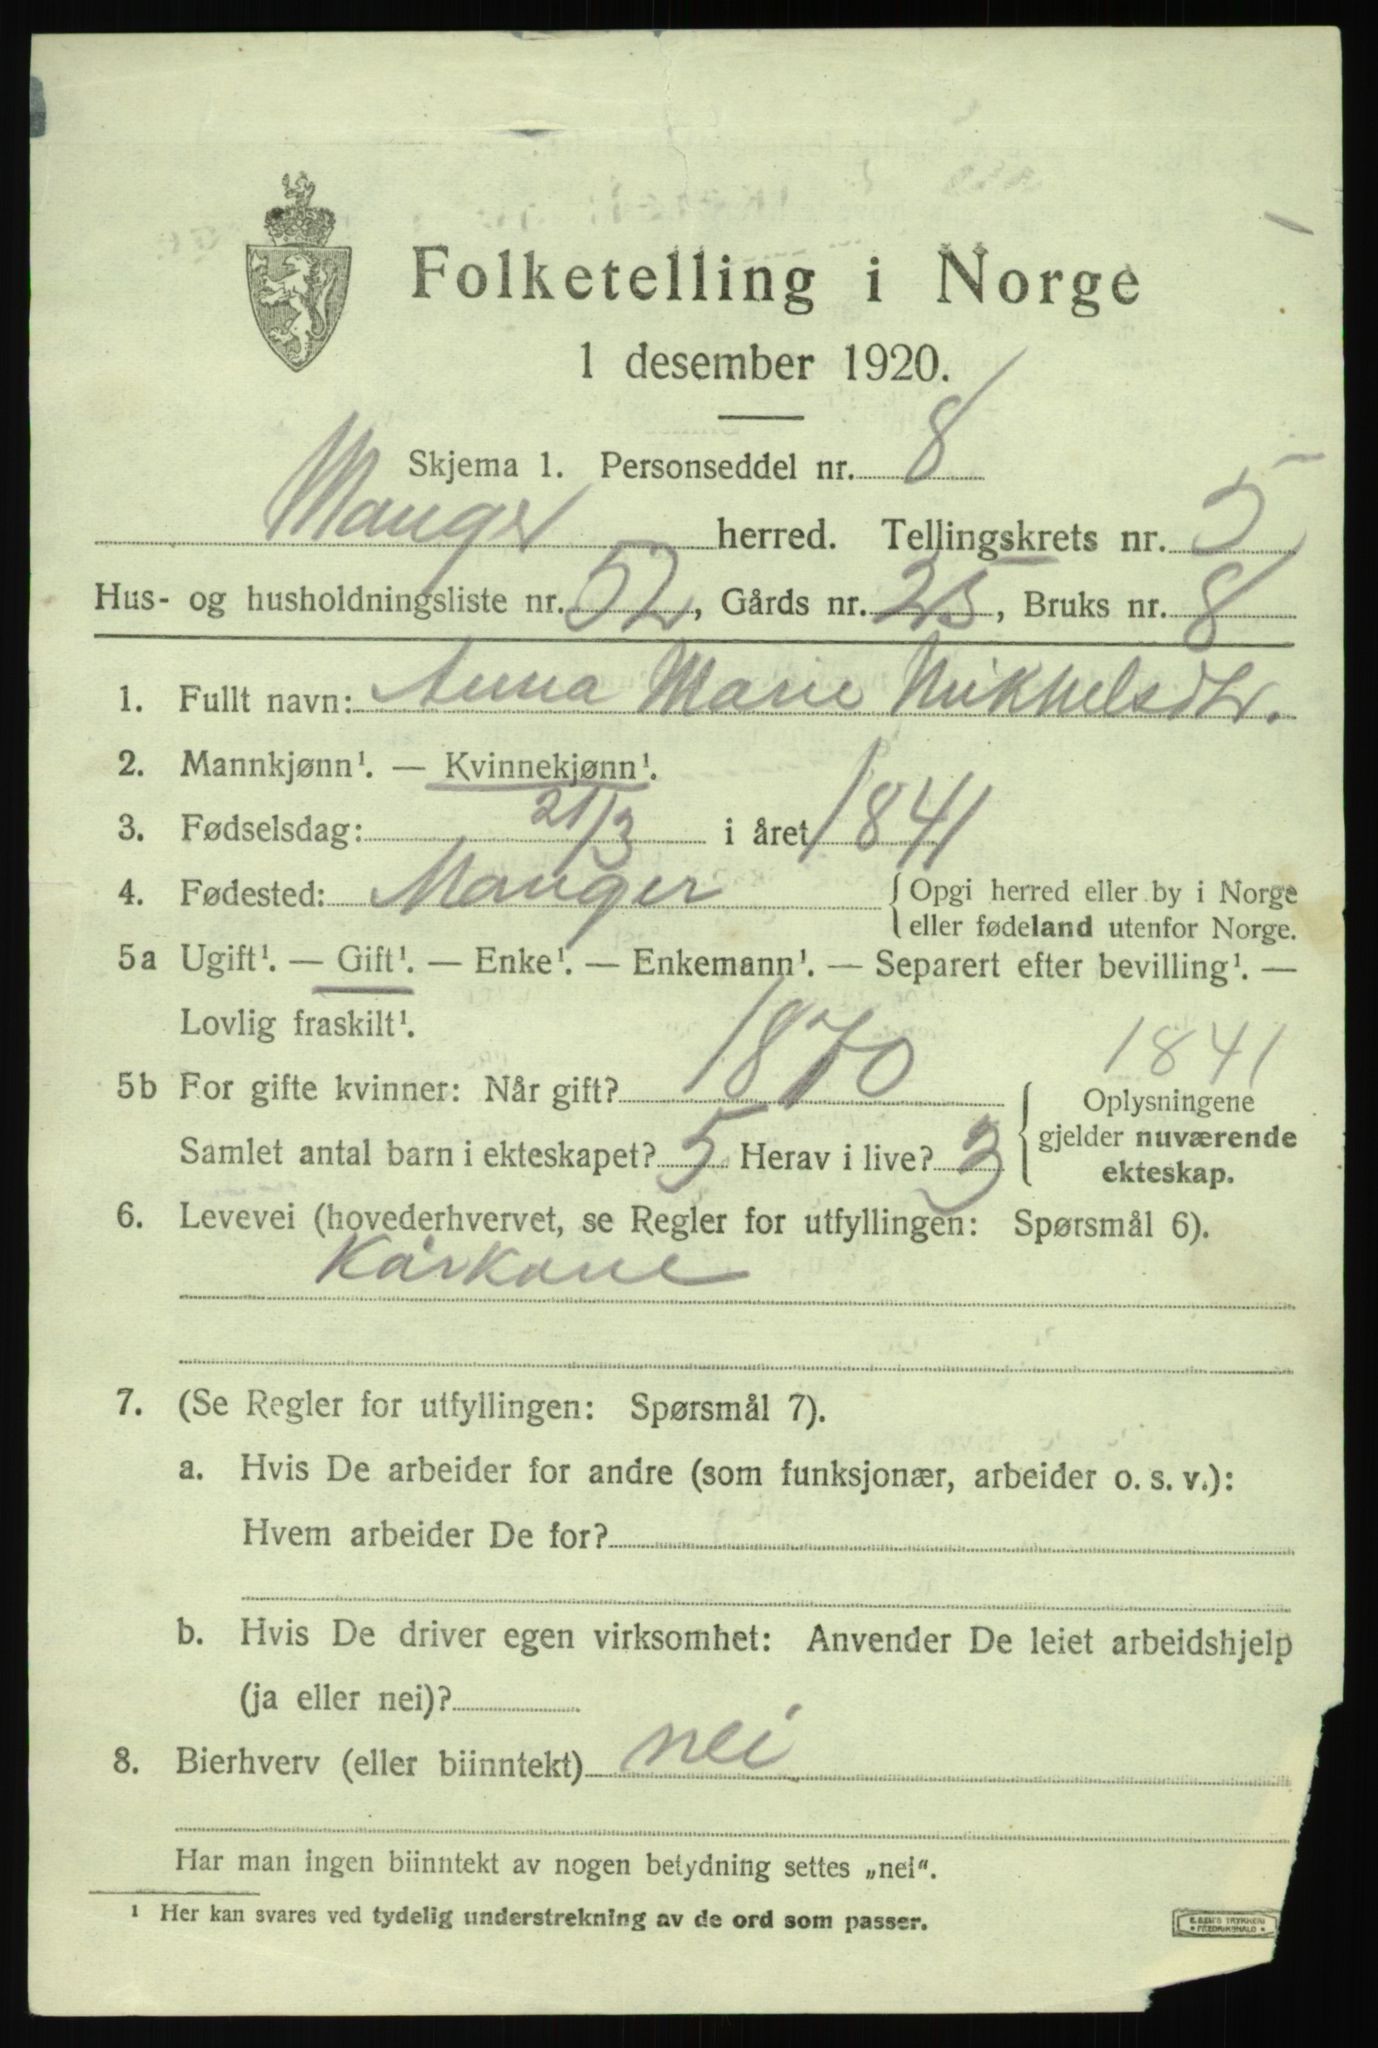 Folketelling i Norge
1 desember 1920.
Skjema 1. Personseddel nr. 8
Manger herred. Tellingskrets nr. 5
Hus- og husholdningsliste nr. 52, Gårds nr. 25, Bruks nr. 8
1. Fullt navn: Anna Marie Mikkelsdtr.
2. Mannkjønn¹. — Kvinnekjønn¹.
3. Fødselsdag: 21/3 i året 1841
4. Fødested: Manger {Opgi herred eller by i Norge
eller fødeland utenfor Norge.
5a Ugift¹. — Gift¹. — Enke¹. — Enkemann¹. — Separert efter bevilling¹. —
Lovlig fraskilt¹.
1841
5b For gifte kvinner: Når gift? 1870 { Oplysningene
gjelder nuværende
ekteskap.
Samlet antal barn i ekteskapet? 5 Herav i live? 3
6. Levevei (hovederhvervet, se Regler for utfyllingen: Spørsmål 6).
Kårkone
7. (Se Regler for utfyllingen: Spørsmål 7).
a. Hvis De arbeider for andre (som funksjonær, arbeider o. s. v.):
Hvem arbeider De for?
b. Hvis De driver egen virksomhet: Anvender De leiet arbeidshjelp
(ja eller nei)?
8. Bierhverv (eller biinntekt) nei
Har man ingen biinntekt av nogen betydning settes „nei".
¹ Her kan svares ved tydelig understrekning av de ord som passer.